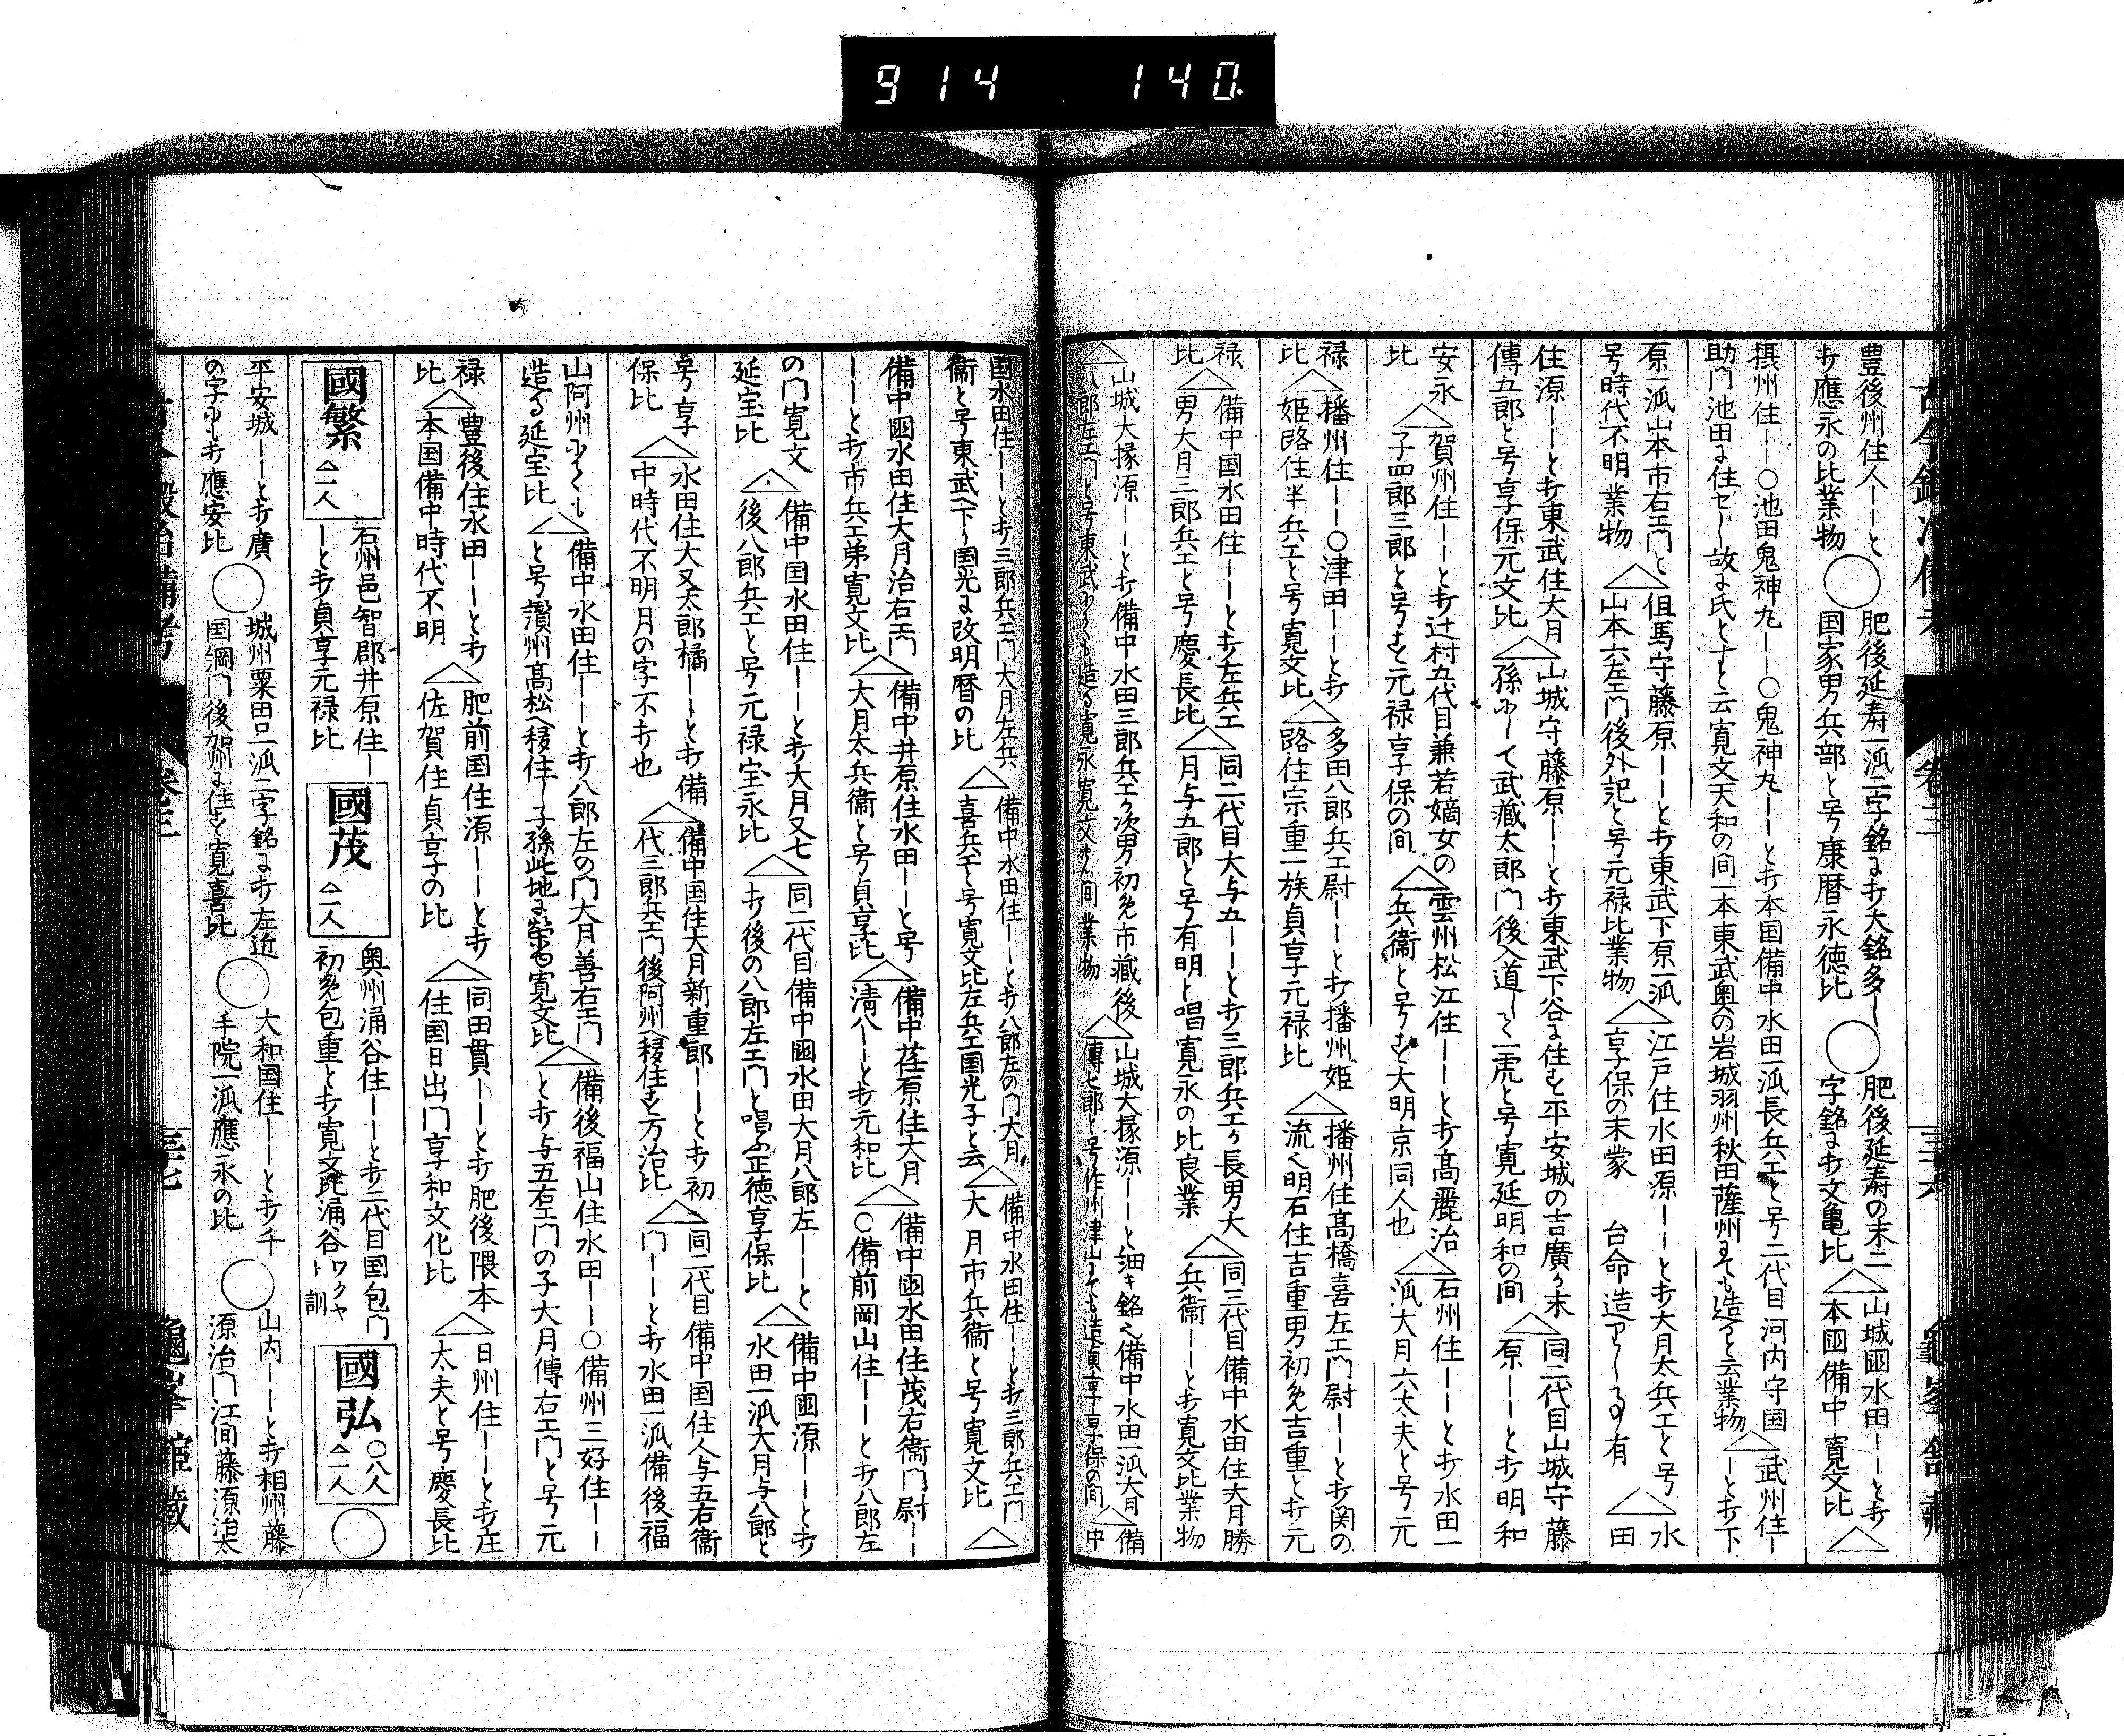 914 140
豊後州住人ーーと
打應永の比業物 ◯ 肥後延寿一派二字銘に打大銘多し
国家男兵部と号康暦永徳比 ◯ 肥後延寿の末二
字銘に打文亀比 △ 山城國水田ーーと打
本國備中寛文比 △
摂州住ーー○池田鬼神丸ーー○鬼神丸ーーと打本国備中水田一派長兵エと号二代目河内守国
助門池田に住せし故に氏とすと云寛文天和の間一本東武奥の岩城羽州秋田薩州にても造ると云業物 △ 武州住ー
ーと打下
原一派山本市右エ門と
号時代不明業物 △ 但馬守藤原ーーと打東武下原一派
山本六左エ門後外記と号元禄比業物 △ 江戸住水田源ーーと打大月太兵エと号
享保の末蒙 台命造りし有 △ 水
田
住源ーーと打東武住大月
傳五郎と号享保元文比 △ 山城守藤原ーーと打東武下谷に住す平安城の吉廣か末
孫にして武蔵太郎門後入道して一虎と号寛延明和の間 △ 同二代目山城守藤
原ーーと打明和
安永
比 △ 賀州住ーーと打辻村五代目兼若嫡女の
子四郎三郎と号す元禄享保の間 △ 雲州松江住ーーと打髙麗治
兵衛と号すと大明京同人也 △ 石州住ーーと打水田一
派大月六太夫と号元
禄
比 △ 播州住ーー○津田ーーと打
姫路住半兵エと号寛文比 △ 多田八郎兵エ尉ーーと打播州姫
路住宗重一族貞享元禄比 △ 播州住髙橋喜左エ門尉ーーと打関の
流く明石住吉重男初名吉重と打元
禄
比 △ 備中国水田住ーーと打左兵エ
男大月三郎兵エと号慶長比 △ 同二代目大与五ーと打三郎兵エか長男大
月与五郎と号有明と唱寛永の比良業 △ 同三代目備中水田住大月勝
兵衛ーーと打寛文比業物
△ 山城大掾源ーーと打備中水田三郎兵エか次男初名市蔵後
八郎左エ門と号東武にても造る寛永寛文の間業物 △ 山城大掾源ーーと細キ銘く備中水田一派大月
傳七郎と号作州津山にても造貞享享保の間 △ 備
中
国水田住ーーと打三郎兵エ門大月左兵
衛と号東武へ下り国光に改明暦の比 △ 備中水田住ーーと打八郎左の門大月
喜兵エと号寛文比左兵エ国光子と云 △ 備中水田住ーーと打三郎兵エ門
大月市兵衛と号寛文比 △
備中國水田住大月治右エ門
ーーと打市兵エ弟寛文比 △ 備中井原住水田ーーと号
大月太兵衛と号貞享比 △ 備中荏原住大月
清八ーーと打元和比 △ 備中國水田住茂右衛門尉ーー
○備前岡山住ーーと打八郎左
の門寛文
延宝比 △ 備中国水田住ーーと打大月又七
後八郎兵エと号元禄宝永比 △ 同二代目備中國水田大月八郎左ーーと
打後の八郎左エ門と唱ふ正徳享保比 △ 備中國源ーーと打
水田一派大月与八郎と
号享
保比 △ 水田住大又太郎橘ーーと打備
中時代不明月の字不打也 △ 備中国住大月新重郎ーーと打初
代三郎兵エ門後阿州へ移住す万治比 △ 同二代目備中国住人与五右衛
門ーーと打水田一派備後福
山阿州にても
造る延宝比 △ 備中水田住ーーと打八郎左の門大月善右エ門
と号讃州髙松へ移住し子孫此地に栄る寛文比 △ 備後福山住水田ーー○備州三好住ーー
と打与五右エ門の子大月傳右エ門と号元
禄
比 △ 豊後住水田ーーと打
本国備中時代不明 △ 肥前国住源ーーと打
佐賀住貞享の比 △ 同田貫ーーと打肥後隈本
住国日出門享和文化比 △ 日州住ーーと打庄
太夫と号慶長比
國繁 △一人
石州邑智郡井原住ー
ーと打貞享元禄比
國茂 △一人
奥州涌谷住ーーと打二代目国包門
初名包重と打寛文比涌谷ワクヤト訓
國弘 ○八人 △一人 ◯
平安城ーーと打廣
の字に打應安比 ◯ 城州粟田口一派二字銘に打左近
国綱門後加州に住す寛喜比 ◯ 大和国住ーーと打千
手院一派應永の比 ◯ 山内ーーと打相州藤
源治門江間藤源治太
卷三 三七 龜峯舘藏